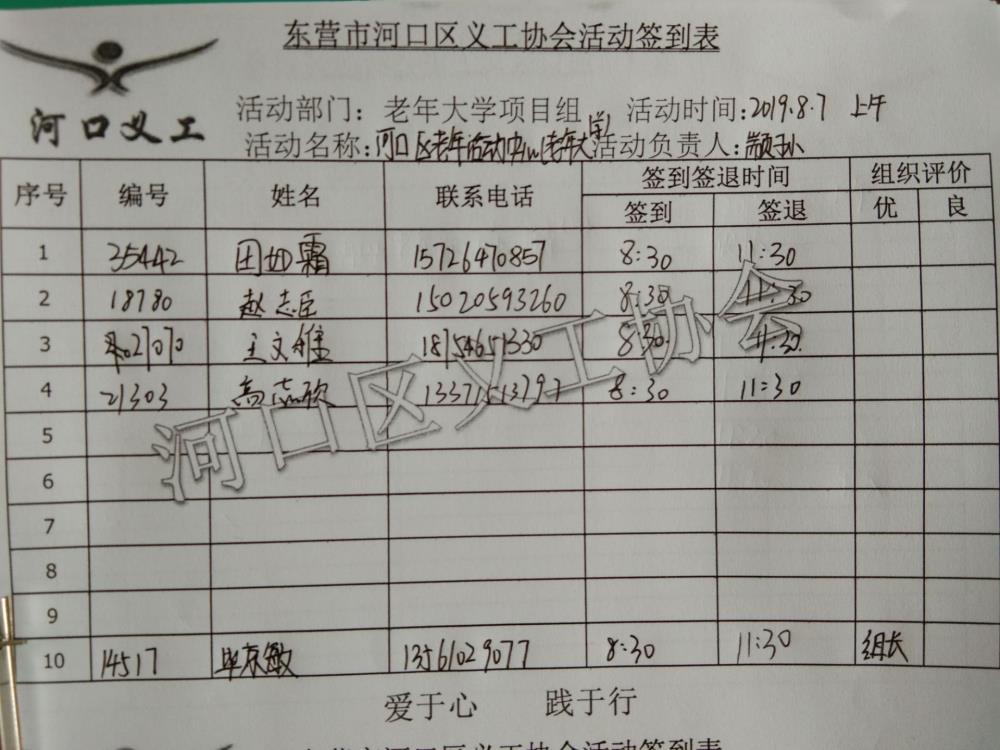 东营市河口区义工协会活动签到表
河口义工
活动部门：老年大学项目组 活动时间:2019.8.7 上午
活动名称:河口区老年活动中心老年大学 活动负责人:
序号 编号 姓名 联系电话 签到签退时间 组织评价
签到 签退 优 良
1 35442 田如霜 15726470857 8:30 11:30
2 18780 赵志臣 15020593260 8:30 11:30
3 王文雅 18754651330 8:30 11:30
4 21303 高志欣 8:30 11:30
5
6
7
8
9
10 14517 毕京敏 13561029077 8:30 11:30 组长
河口区义工协会
爱于心 践于行
东营市河口区义工协会活动签到表